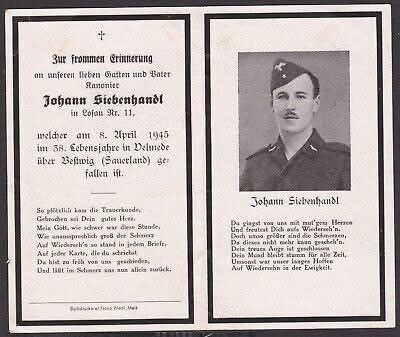 Zur frommen Erinnerung
an unseren lieben Gatten und Vater
Kanonier
Johann Siebenhandl
in Losau Nr. 11,
welcher am 8. April 1945
im 38. Lebensjahre in Velmede
über Bestwig (Sauerland) ge-
fallen ist.
So plötzlich kam die Trauerkunde,
Gebrochen sei Dein gutes Herz.
Mein Gott, wie schwer war diese Stunde,
Wie unaussprechlich groß der Schmerz
Auf Wiederseh'n so stand in jedem Briefe,
Auf jeder Karte, die du schriebst
Du bist zu früh von uns geschieden,
Und läßt im Schmerz uns nun allein zurück.
Buchdruckerei Franz Wedl, Melk
Johann Siebenhandl
Du gingst von uns mit mut'gem Herzen
Und freutest Dich aufs Wiederseh'n.
Doch umso größer sind die Schmerzen,
Da dieses nicht mehr kann gescheh'n.
Dein treues Auge ist geschlossen
Dein Mund bleibt stumm für alle Zeit,
Umsonst war unser langes Hoffen
Auf Wiedersehn in der Ewigkeit.